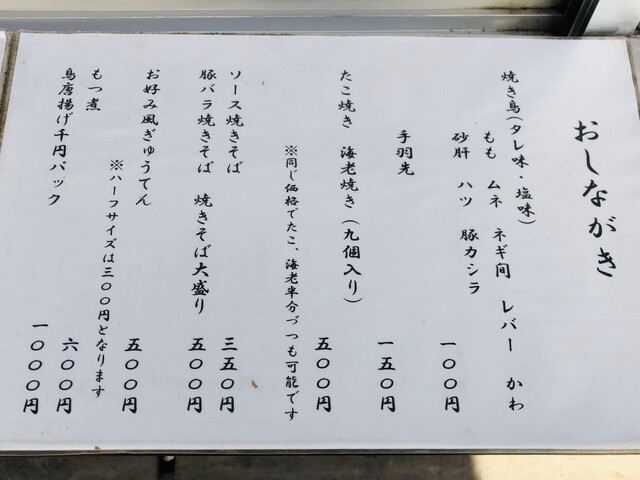 おしながき
焼き鳥(タレ味・塩味)
もも ムネ ネギ間 レバー かわ
砂肝 ハツ 豚カシラ
一〇〇円
手羽先 一五〇円
たこ焼き 海老焼き(九個入り) 五〇〇円
※同じ価格でたこ、海老半分づつも可能です
ソース焼きそば 三五〇円
豚バラ焼きそば 焼きそば大盛り 五〇〇円
お好み風ぎゅうてん 五〇〇円
※ハーフサイズは三〇〇円となります
もつ煮 六〇〇円
鳥唐揚げ千円パック 一〇〇〇円